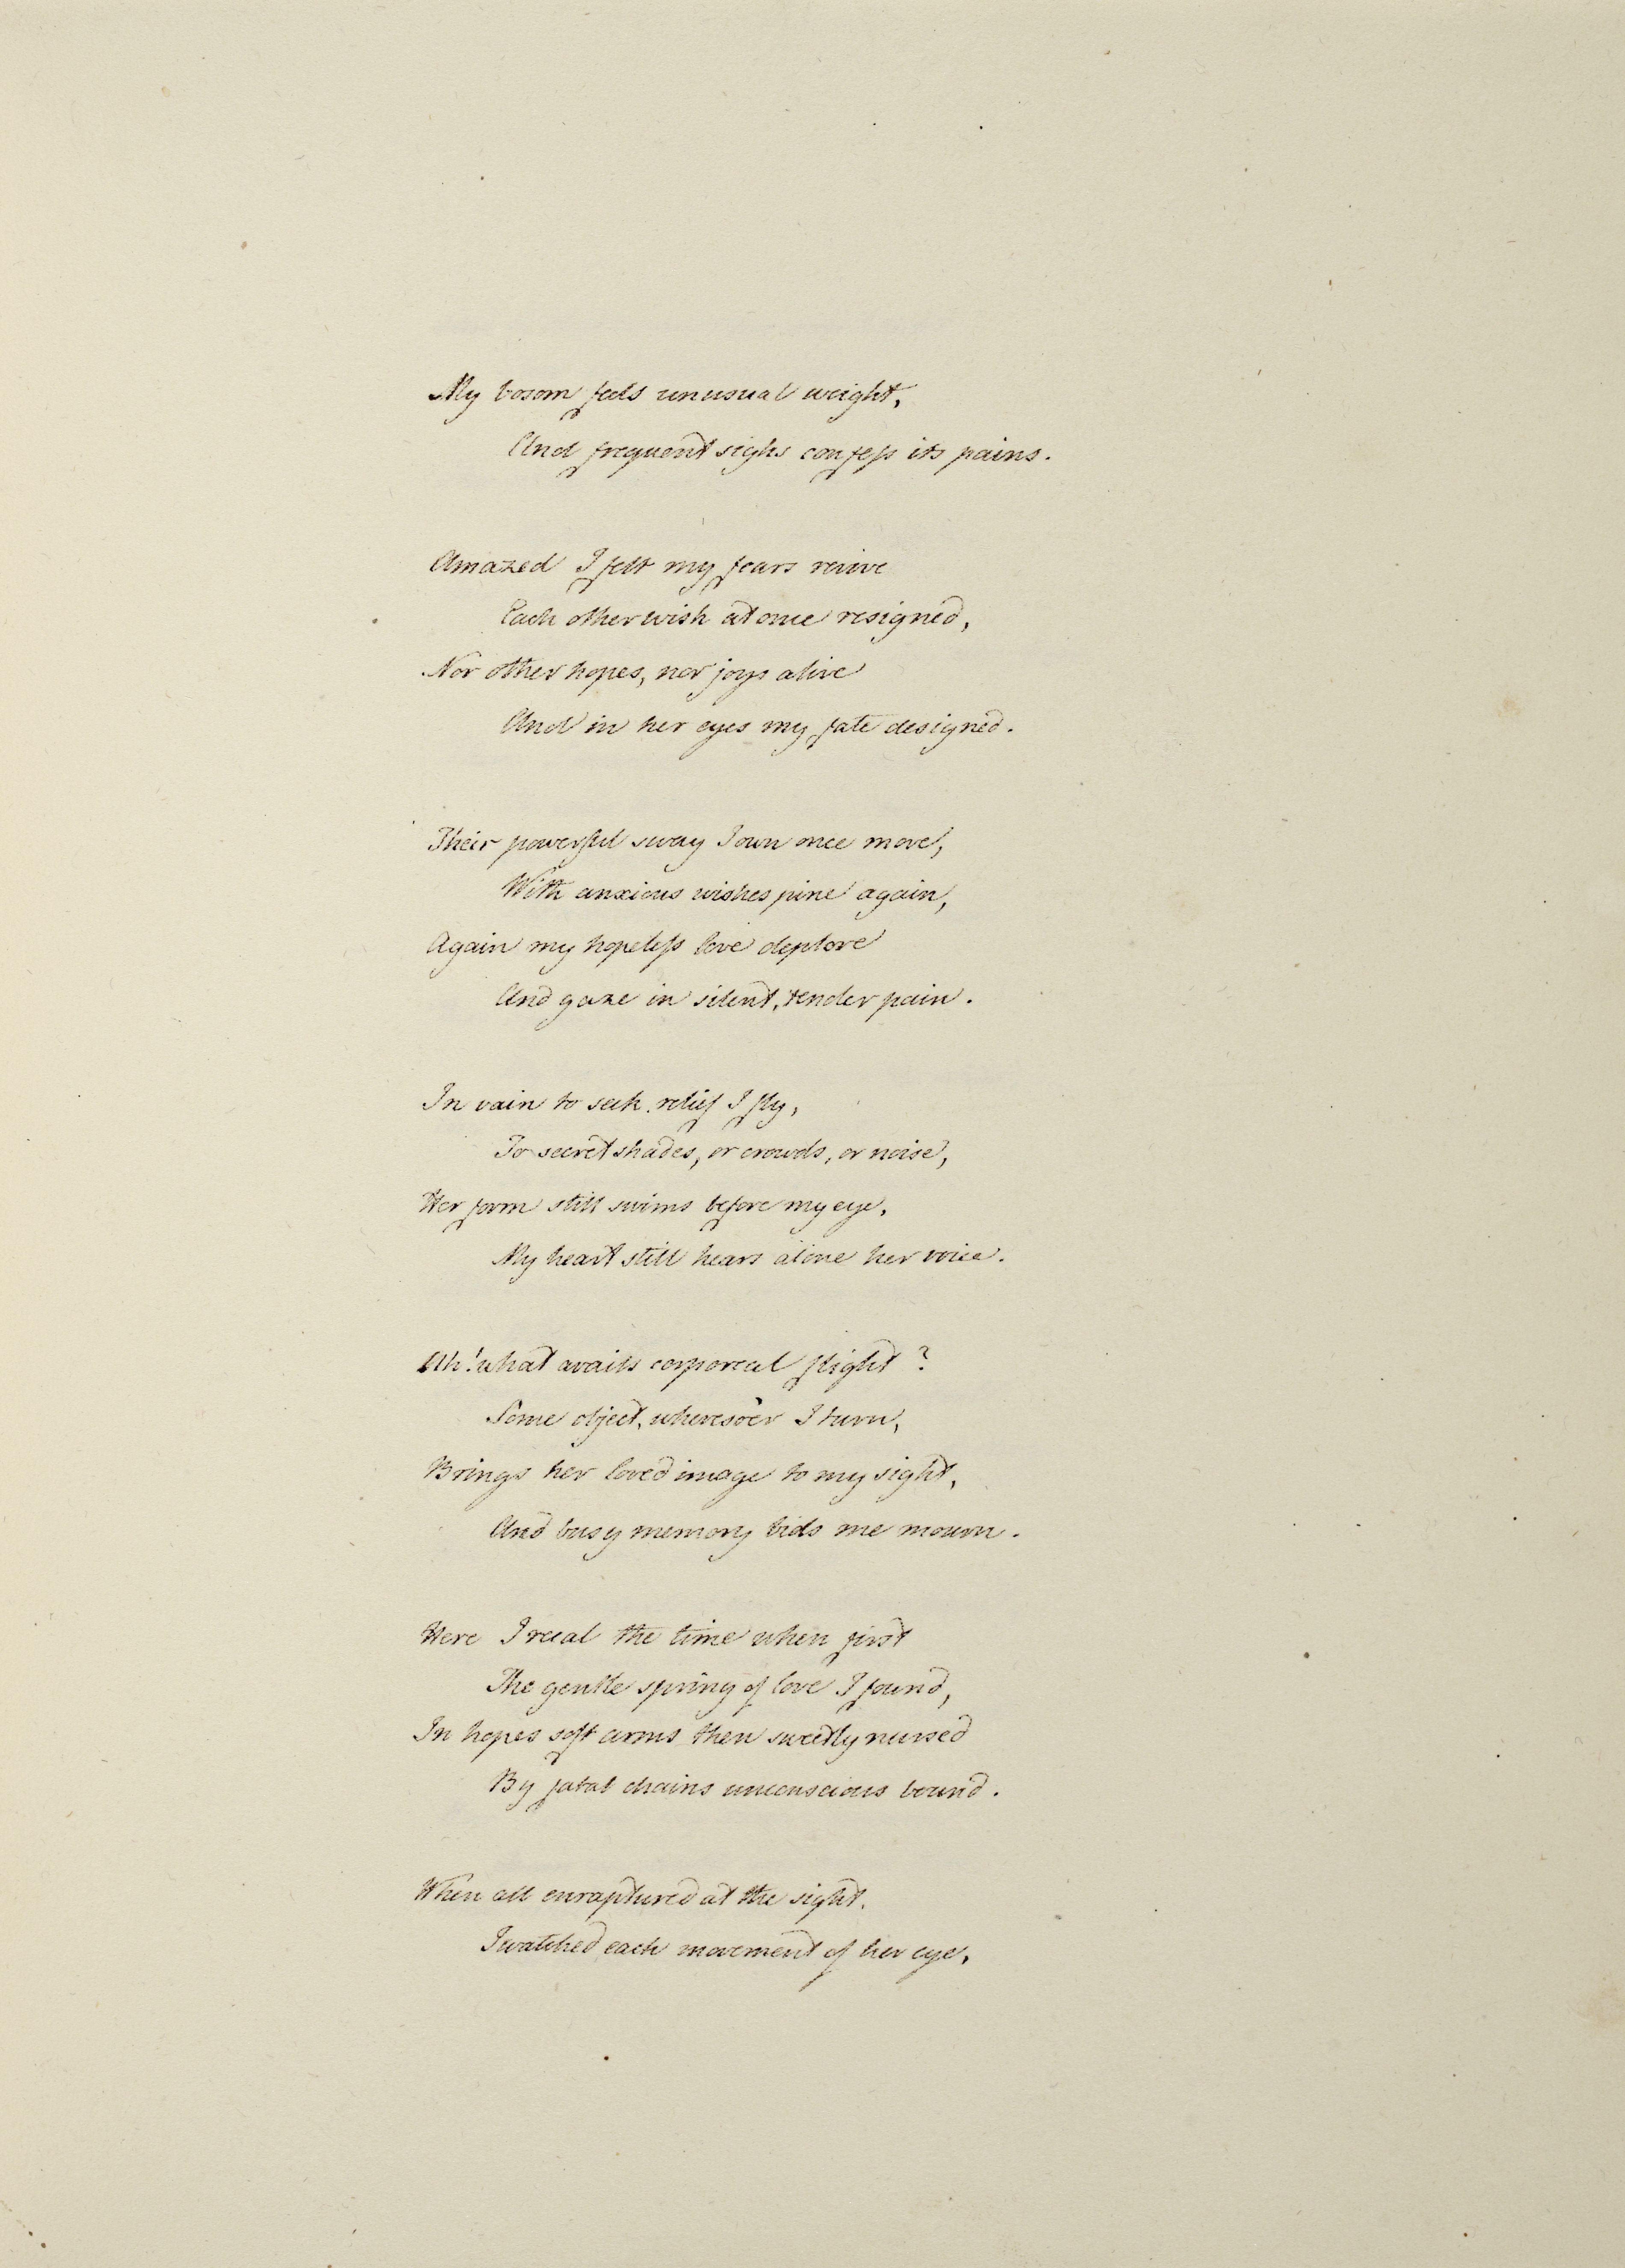 My bosom feels unusual weight,
And frequent sighs confeſs its pains.
Amazed I felt my fears revive
Each other wish at once resigned,
Nor other hopes, nor joys alive
And in her eyes my fate designed.
Their powerful sway I own once more,
With anxious wishes pine again,
Again my hopeleſs love deplore
And gaze in silent, tender pain.
In vain to seek relief I fly,
To secret shades, or crowds, or noise,
Her form still swims before my eye,
My heart still hears alone her voice.
Ah! what avails corporeal flight?
Some object, wheresoe'er I turn,
Brings her loved image to my sight,
And busy memory bids me mourn.
Here I recal the time when first
The gentle spring of love I found,
In hopes soft arms then sweetly nursed
By fatal chains unconscious bound.
When all enraptured at the sight,
I watched each movement of her eye,